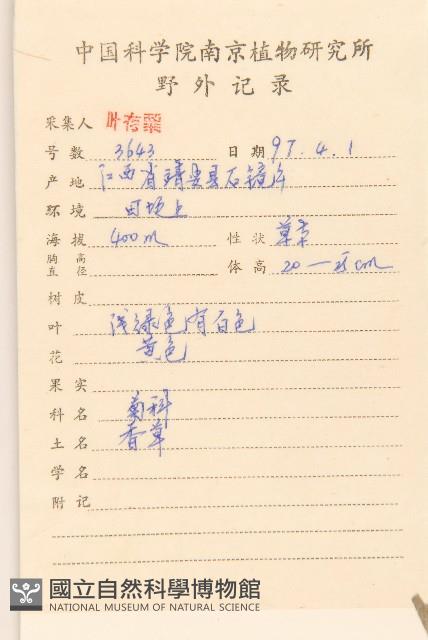 中国科学院南京植物研究所
野外记录
采集人 叶存粟
号数 3643 日期 97.4.1
产地 江西省靖安县石镜
环境 田埂上
海拔 400m 性状 草本
胸高直径 体高 20—25cm
树皮
叶 浅绿色有白色
花 黄色
果实
科名 菊科
土名 香草
学名
附记
國立自然科學博物館
NATIONAL MUSEUM OF NATURAL SCIENCE